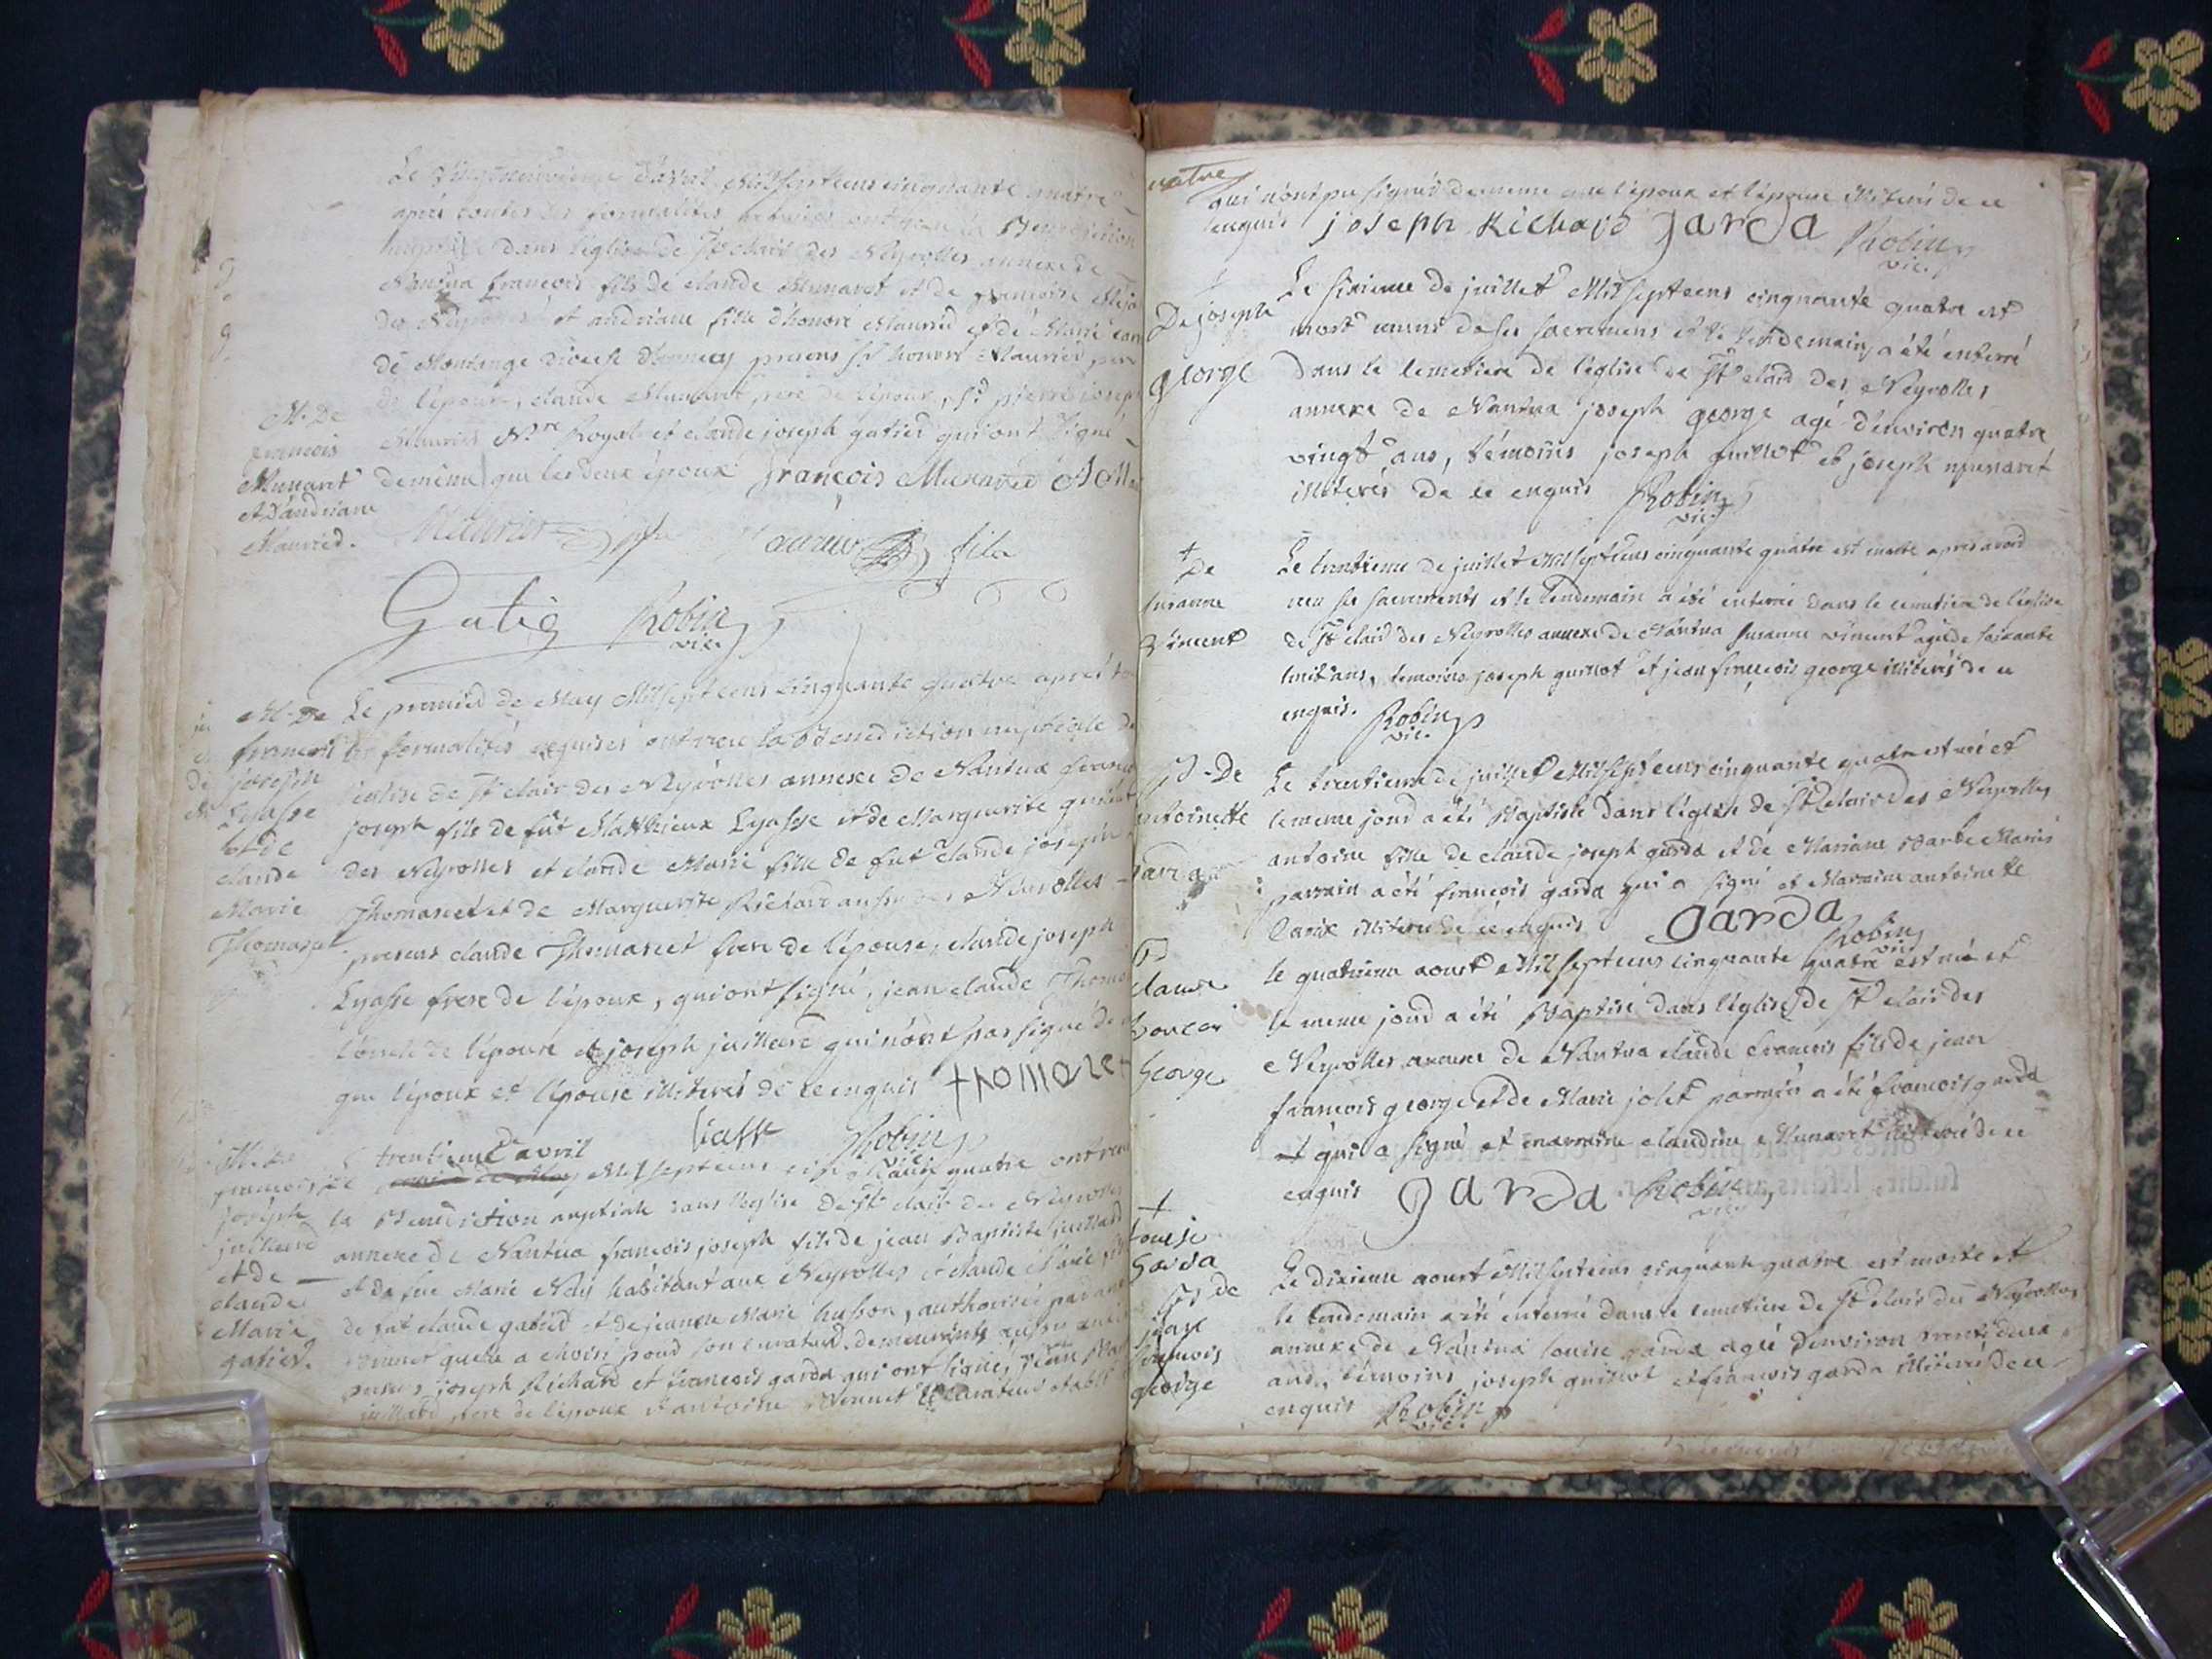 Le vingtneuvieme d'avril Mil septcens cinquante quatre
apres toutes les formalités requises ont reçu la Benediction
nuptiale dans l'eglise de St clair des Neyrolles annexe de
Nantua francois fils de claude Munaret et de francoise
des Neyrolles et andriane fille d'honoré Maurier et de Marie
de Montange diocese d'annecy presens Sr honoré Maurier pere
de l'epouse, claude Munaret pere de l'epoux, Sr pierre joseph
Maurier N.re Royal et claude joseph gatier qui ont signé
de même que les deux époux françois Munaret
M. De
francois
Munaret
et d'andriane
Maurier.
Maurier
Maurier fils
Gatie Robin
vic.
M. De
francois
joseph
Lyasse
et de
claude
Marie
Thomaset
Le premier de May Mil septcens cinquante quatre aprés
les formalités requises ont recu la benediction nuptiale
l'eglise de St clair des Neyrolles annexe de Nantua francois
joseph fils de fût Matthieux Lyasse et de Marguerite
des Neyrolles et claude Marie fille de fut claude joseph
Thomaset et de Marguerite Richard aussi des Neyrolles
presens claude Thomaset frere de l'épouse, claude joseph
Lyasse frere de l'époux, qui ont signé, jean claude
l'oncle de l'epouse et joseph juillard qui n'ont pas signé de
que l'époux et l'épouse illiterés de ce enquis thomaset
liasse Robin
vic.
M. de
francois
joseph
juillard
et de
claude
Marie
gatier.
trentieme d'avril
Le Mil septcens cinquante quatre ont recu
la Benediction nuptiale dans l'eglise de St clair des Neyrolles
annexe de Nantua francois joseph fils de jean Baptiste juillard
et de fue Marie habitant aux Neyrolles et claude Marie
de fut claude gatier et de jeanne Marie husson, authorisée par
qu'elle a choisi pour son curateur demeurants aussi
presens joseph Richard et francois garda qui ont signés, jean
juillard pere de l'époux et antoine curateur
quatre
qui n'ont pu signér de meme que l'epoux et l'epouse illiterés de ce
enquis joseph Richard garda Robin
vic.
+
De joseph
george
Le sixieme de juillet Mil septcens cinquante quatre est
mort muni de ses sacremens et le lendemain, a été enterré
dans le cemetiere de l'église de St clair des Neyrolles
annexe de Nantua joseph george agé d'environ quatre
vingt ans, témoins joseph guillot et joseph munaret
illiterés de ce enquis Robin
vic.
+
De
susanne
Vincent
Le trentieme de juillet Mil septcens cinquante quatre est morte apres avoir
recu ses sacrements et le lendemain a été enterrée dans le cemetiere de l'église
de St clair des Neyrolles annexe de Nantua susanne vincent agée de soixante
huit ans, temoins joseph guillot et jean françois george illiterés de ce
enquis. Robin
vic.
B. De
antoinette
garda
Le trentieme de juillet Mil septcens cinquante quatre est née et
le meme jour a été Baptisée dans l'église de St clair des Neyrolles
antoine fille de claude joseph garda et de Mariane Mariés
parrain a été françois garda qui a signé et Marraine antoinette
illiterée de ce enquis garda
Robin
vic.
B
claude
francois
George
le quatrieme aoust Mil septcens cinquante quatre est né et
le meme jour a été Baptisé dans l'église de St clair des
Neyrolles annexe de Nantua claude francois fils de jean
francois george et de Marie jolet parrain a été francois garda
qui a signé et marraine claudine Munaret illiterée de ce
enquis garda Robin
vic.
+
louise
Garda
B de
jean
francois
george
Le dixieme aoust Mil septcens cinquante quatre est morte et
le lendemain a été enterrée dans le cemetiere de St clair des Neyrolles
annexe de Nantua louise garda agée d'environ trente deux
ans, témoins joseph guillot et francois garda illiterés de ce
enquis Robin
vic.